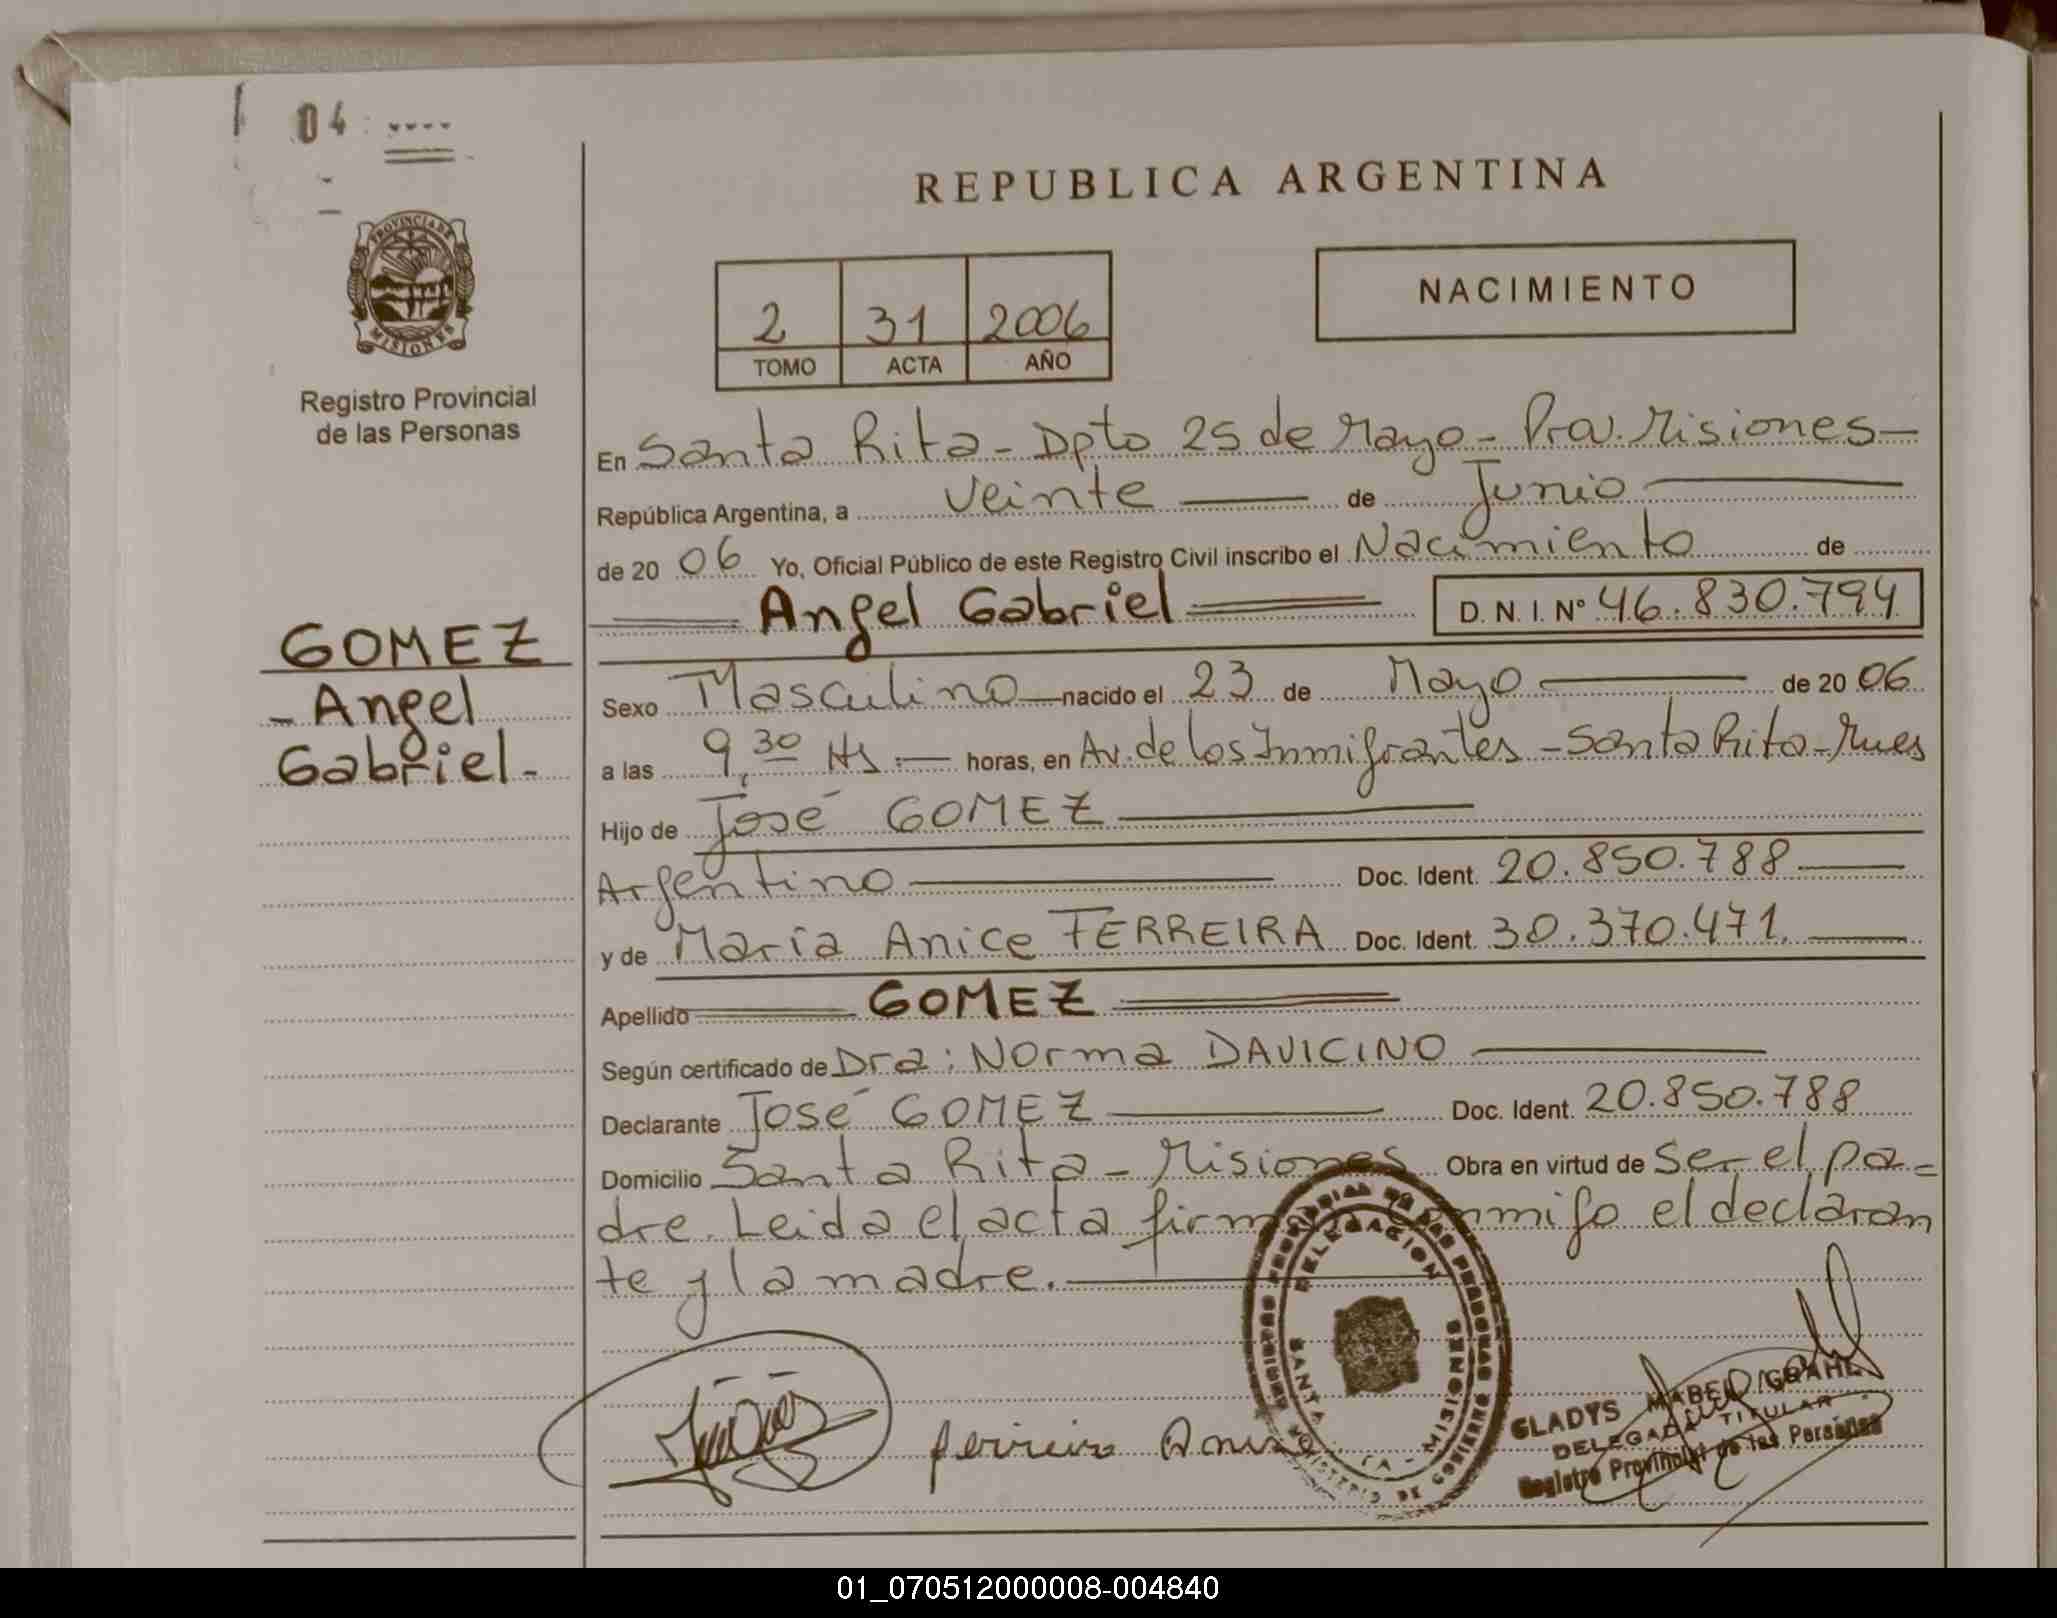 04
PROVINCIA DE
MISIONES
Registro Provincial
de las Personas
GOMEZ
- Angel
Gabriel-
REPUBLICA ARGENTINA
2 31 2006
TOMO ACTA AÑO
NACIMIENTO
En Santa Rita - Dpto 25 de Mayo - Pcia. Misiones -
República Argentina, a veinte de Junio
de 20 06 Yo, Oficial Público de este Registro Civil inscribo el Nacimiento de
Angel Gabriel D. N. I. Nº 46.830.794
Sexo Masculino nacido el 23 de Mayo de 20 06
a las 9,30 Hs horas, en Av. de los Inmigrantes - Santa Rita - Mnes
Hijo de José GOMEZ
Argentino Doc. Ident. 20.850.788
y de María Anice FERREIRA Doc. Ident. 30.370.471.
Apellido GOMEZ
Según certificado de Dra: Norma DAVICINO
Declarante José GOMEZ Doc. Ident. 20.850.788
Domicilio Santa Rita - Misiones Obra en virtud de Ser el pa=
dre. Leida el acta firma conmigo el declaran
te y la madre.
DELEGACION
SANTA RITA - MISIONES
MINISTERIO DE GOBIERNO
GLADYS MABEL GRAHL
DELEGADA TITULAR
Registro Provincial de las Personas
01_070512000008-004840